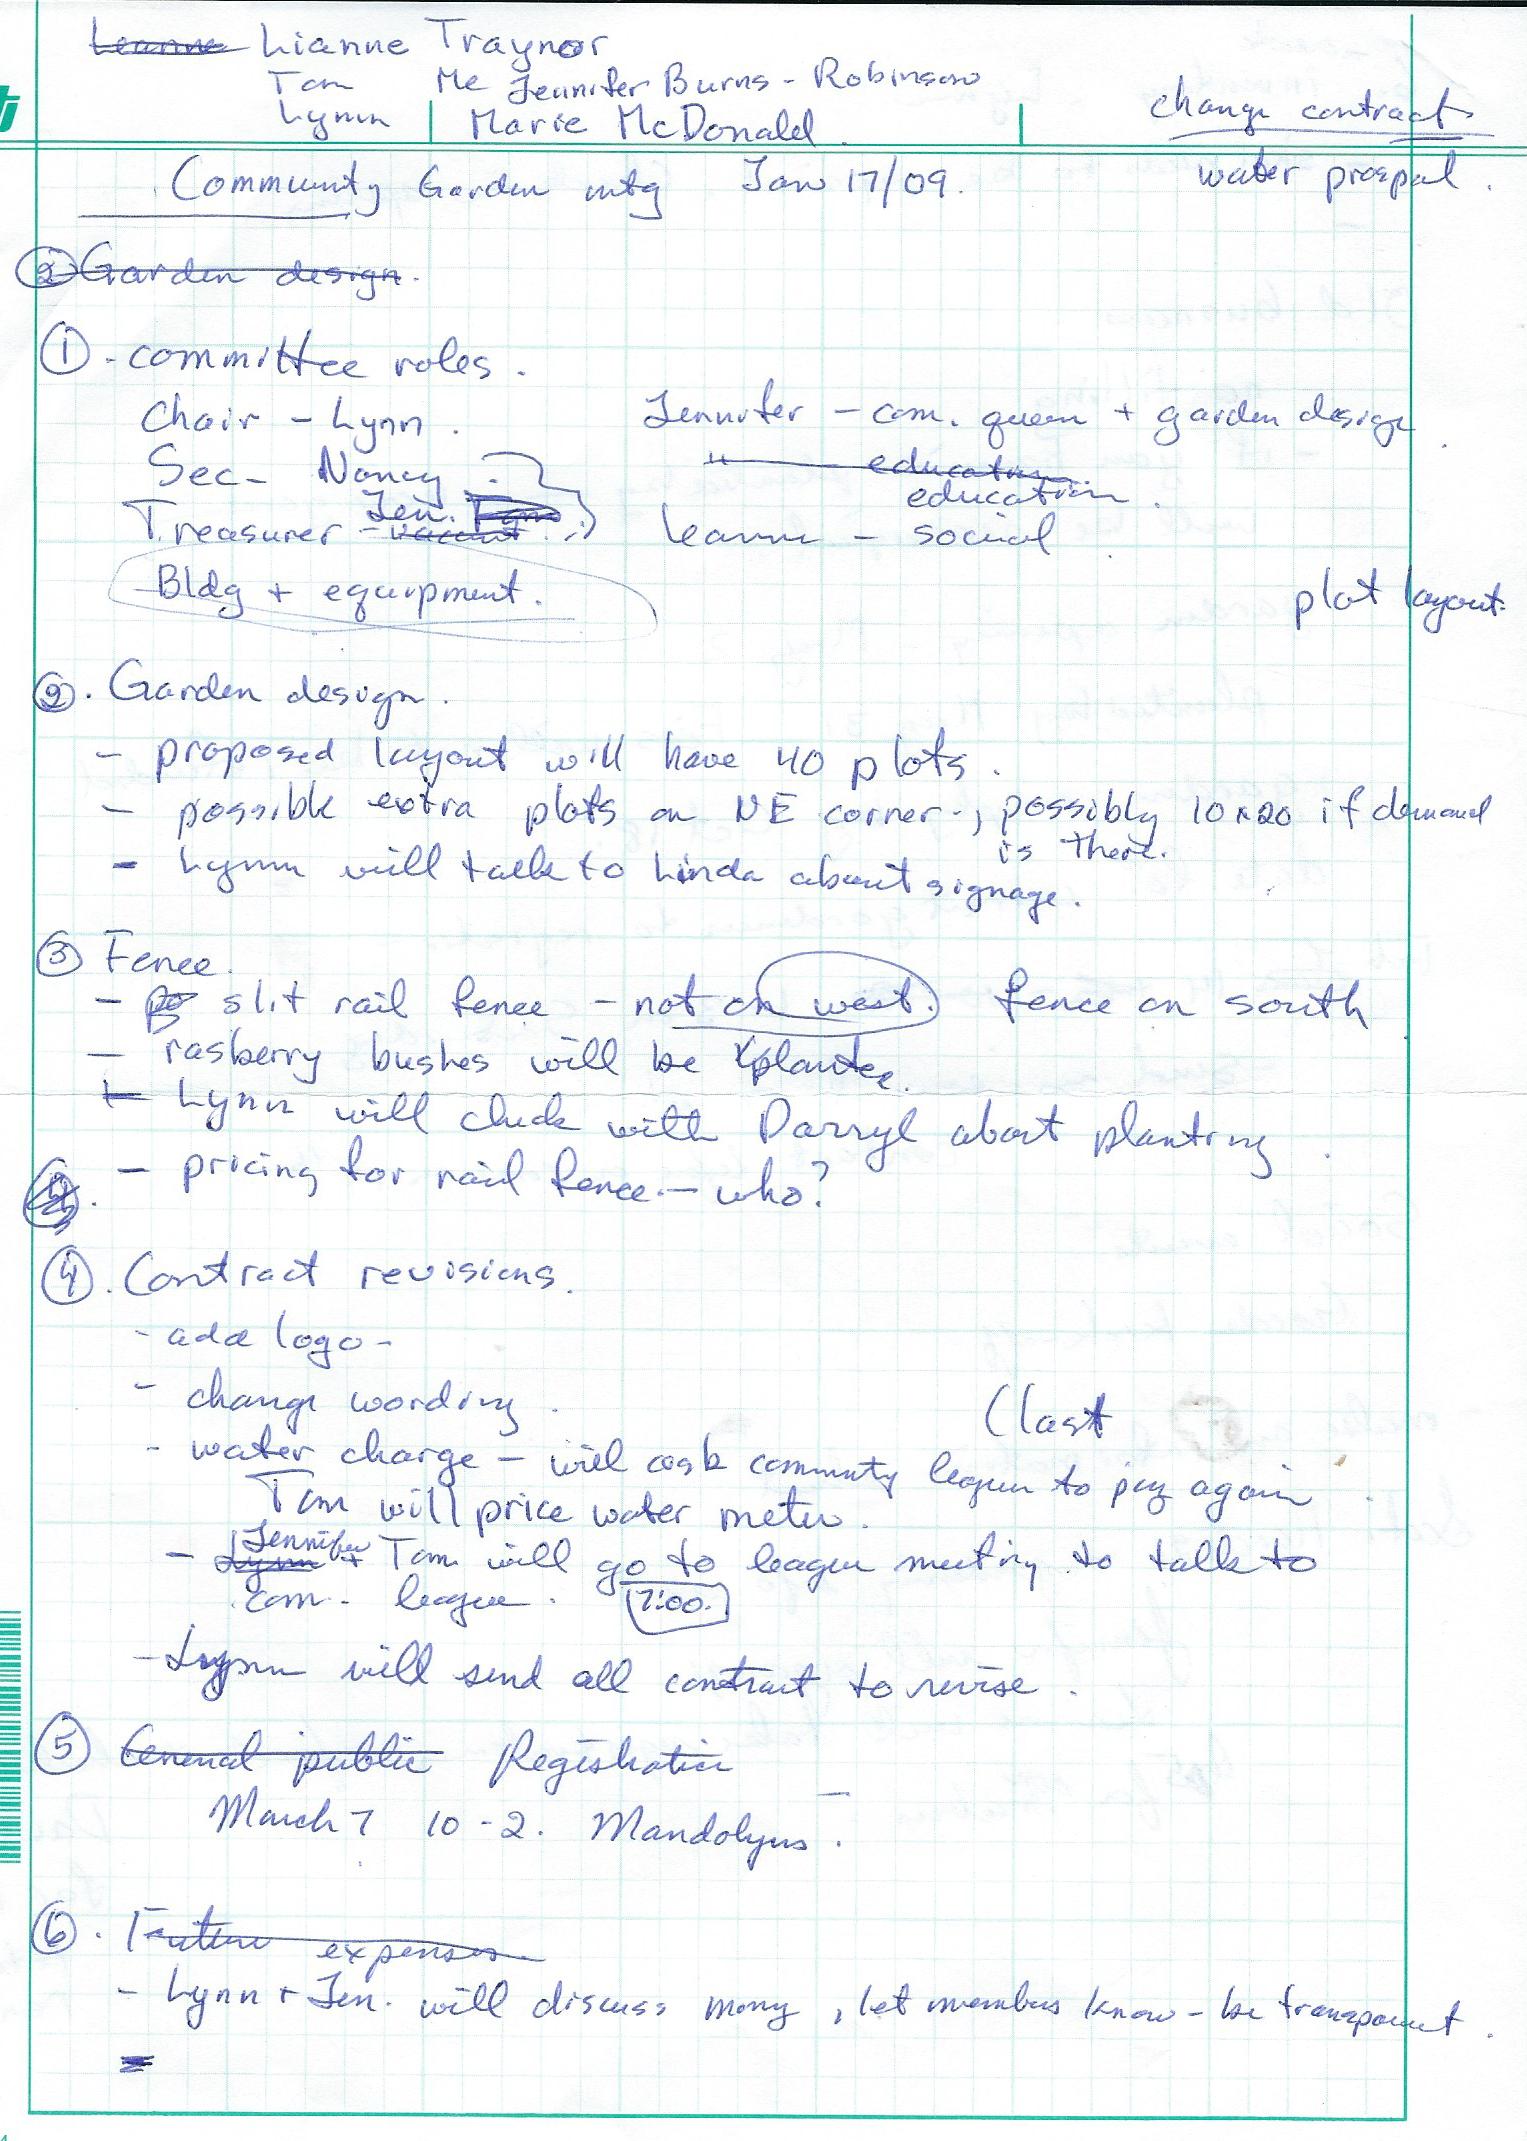 Leanne Lianne Traynor
Tom Me Jennifer Burns - Robinson
Lynn Marie McDonald.
change contract
Community Garden mtg Jan 17/09.
water prospal.
② Garden design.
① - committee roles.
Chair - Lynn.
Jennifer - com. queen + garden design.
Sec - Nancy.
" education
education.
Jen. Lynn
Treasurer - vacant
Leanne - social.
Bldg + equipment.
plot layout.
②. Garden design.
- proposed layout will have 40 plots.
- possible extra plots on NE corner -, possibly 10x20 if demand
is there.
- Lynn will talk to Linda about signage.
③ Fence.
- slit rail fence - not on west. fence on south
- rasberry bushes will be
- Lynn will check with Darryl about planting.
- pricing for rail fence. - who?
4.
④. Contract revisions.
- add logo -
- change wording.
(last
- water charge - will ask community league to pay again.
Tom will price water meter.
Jennifer
- Lynn + Tom will go to league meeting to talk to
com. league. 7:00.
- Lynn will send all contract to revise.
⑤ General public Registration
March 7 10 - 2. Mandolyns.
⑥. Future expenses
- Lynn + Jen. will discuss mony, let members know - be transparent.